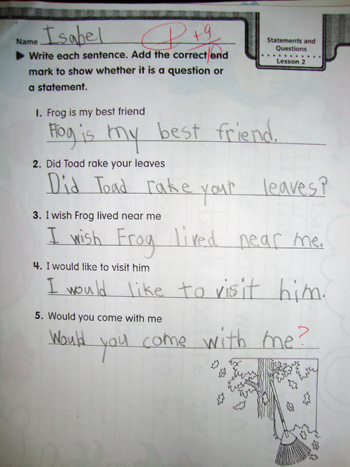 Name Isabel
P +9/10
Statements and
Questions
Lesson 2
Write each sentence. Add the correct end
mark to show whether it is a question or
a statement.
1. Frog is my best friend
Frog is my best friend.
2. Did Toad rake your leaves
Did Toad rake your leaves?
3. I wish Frog lived near me
I wish Frog lived near me.
4. I would like to visit him
I would like to visit him.
5. Would you come with me
Would you come with me?